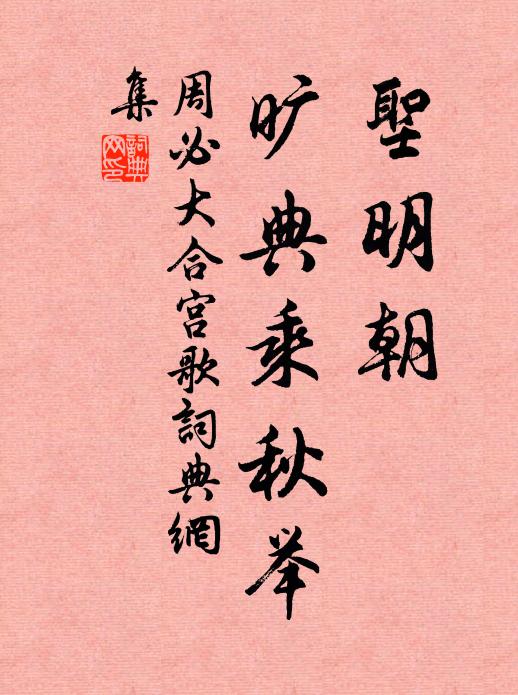 聖明朝
旷典乘秋举
周必大合宫歌詞典網
集
詞典網印